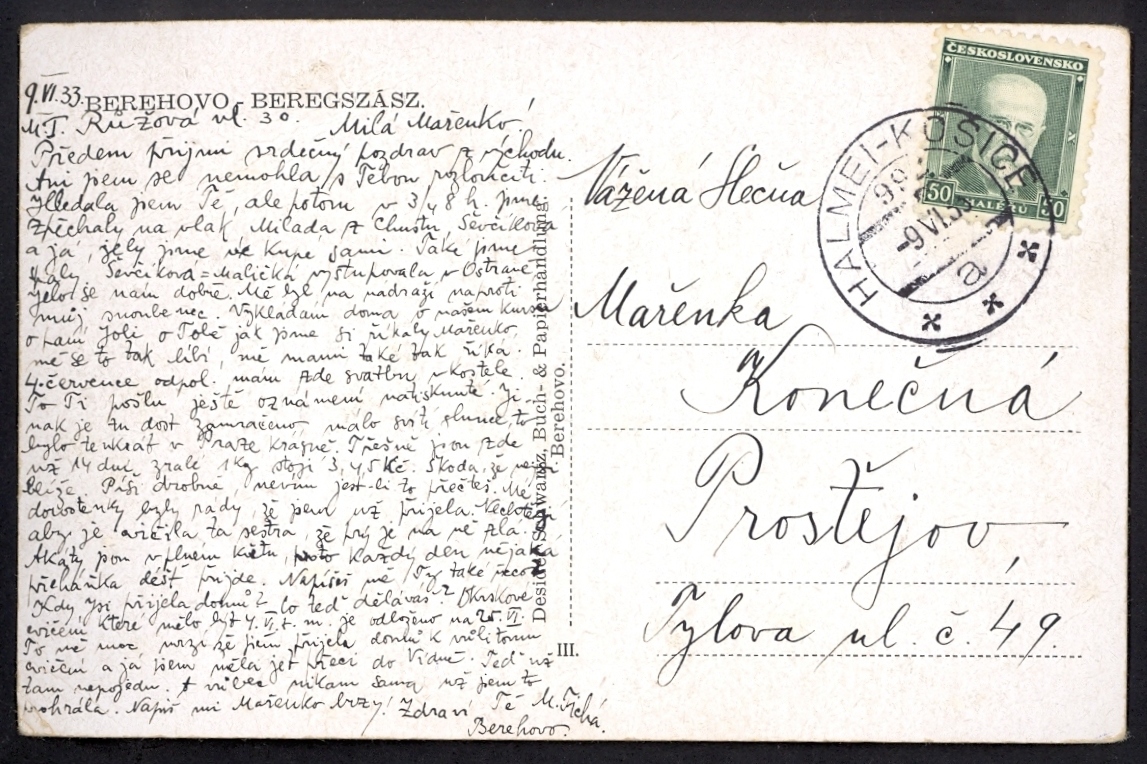 9.VI.33.
BEREHOVO – BEREGSZÁSZ.
M.T. Růžová ul. 30. Milá Mařenko!
Předem přijmi srdečný pozdrav z východu.
Ani jsem se nemohla s Tebou rozloučiti.
Hledala jsem Tě, ale potom v 3/4 8 h. jsme
spěchaly na vlak. Milada z Chustu, Ševčíková
a já, jely jsme ve kupé sami. Také jsme
spaly. Ševčíková = Malička vystupovala v Ostravě.
Jelo se nám dobře. Mě byl na nádraží naproti
můj snoubenec. Vykládám doma o našem kursu
o paní Joli o Tobě jak jsme si říkaly Mařenko,
mě se to tak líbí, mé mami také tak říká.
4. července odpol. mám zde svatbu v kostele.
To Ti pošlu ještě oznámení natisknuté. Ji-
nak je tu dost zamračeno, málo svítí slunce, to
bylo tenkrát v Praze krásně. Třešně jsou zde
už 14 dní zralé 1 kg stojí 3, 4, 5 Kč. Škoda, že nejsi
blíže. Píši drobně, nevím jest-li to přečteš. Mé
dorostenky byly rády, že jsem už přijela. Nechtěly
aby je cvičila ta sestra, že prý je na ně zlá.
Akáty jsou v plném květu, každý den nějaká
přeháňka déšť přijde. Napíšeš mě Ty také něco?
Kdy jsi přijela domů? Co teď děláváš? Okrskové
cvičení které mělo být 4.VI. t. m. je odloženo na 25.VI.
To mě moc mrzí že jsem přijela domů k vůli tomu
cvičení a já jsem měla jet přeci do Vídně. Teď už
tam nepojedu. A vůbec nikam sama už jsem to
prohrála. Napiš mi Mařenko brzy! Zdraví Tě M. Tichá.
Berehovo.
Desider Schwarz, Buch- & Papierhandlung,
Berehovo.
III.
ČESKOSLOVENSKO
50 HALÉŘŮ 50
HALMEI-KOŠICE
-9.VI.
a
Vážená Slečna
Mařenka
Konečná
Prostějov,
Tylova ul. č. 49.